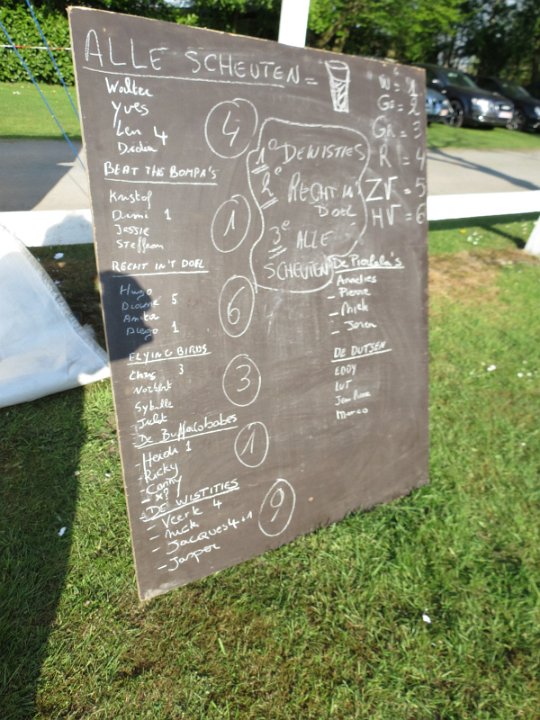 ALLE SCHEUTEN =
Walter
Yves
Len 4
4
BEAT THE BOMPA'S
Kristof
Dimi 1
Jessie
Steffean
1
RECHT IN'T DOEL
Hugo
5
Anita
Diego 1
6
FLYING BIRDS
Chris 3
Norbert
Sybille
Juliet
3
De Buffalobabes
- Heidi 1
- Ricky
- Conny
- x?
1
- DE WISTITIES
- Veerle 4
- Nick
- Jacques 4+1
- Jasper
9
1° DEWISTIES
2° RECHT IN'T
DOEL
3° ALLE
SCHEUTEN
W = 1
GE = 2
GR = 3
R = 4
ZV = 5
HV = 6
De Pierlala's
Annelies
- Pierre
- Mick
- Joren
DE DUTSEN
EDDY
LUT
Jean Pierre
Marco